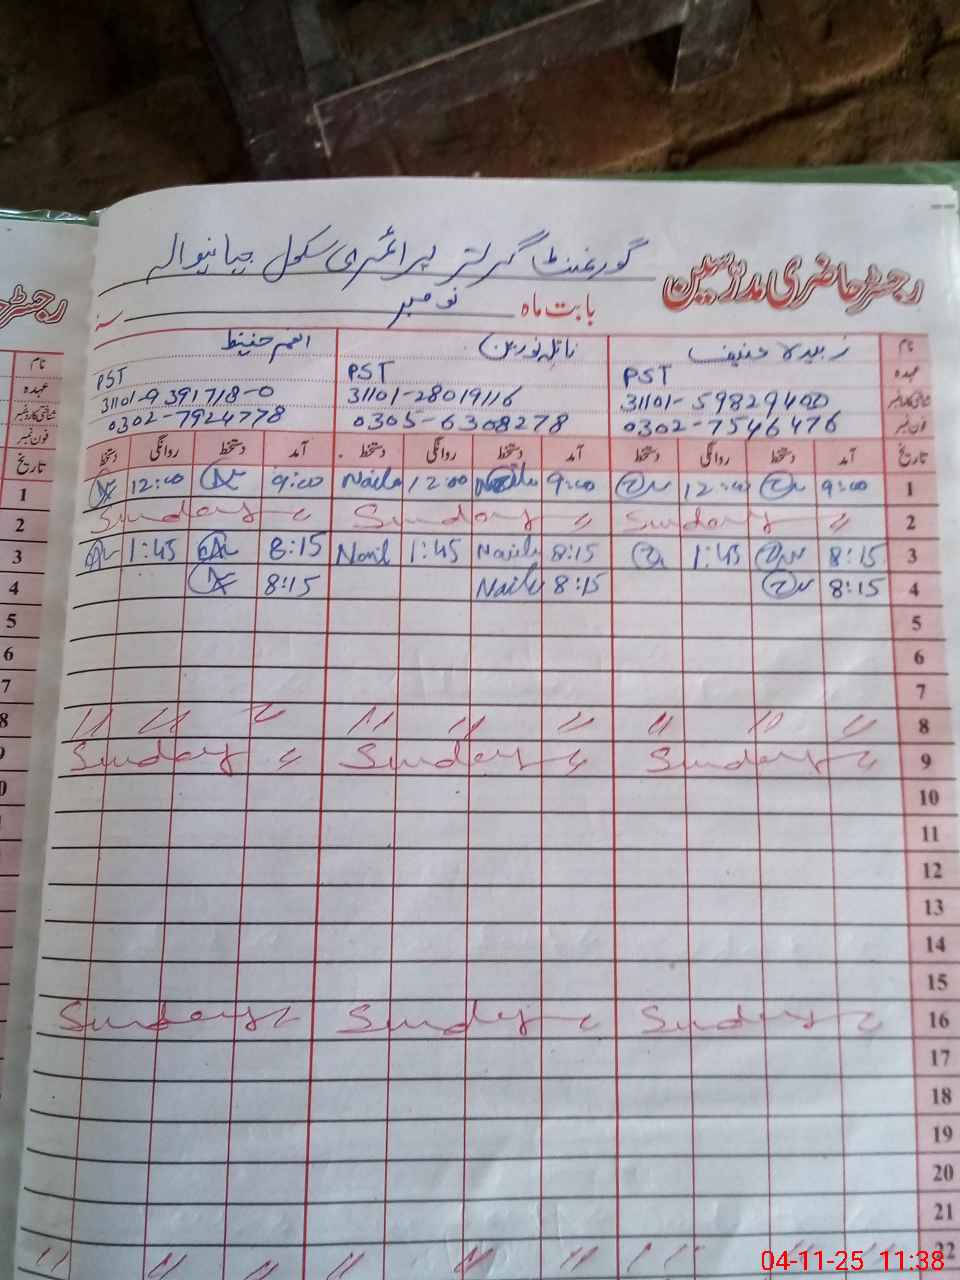 گورنمنٹ گرلز پرائمری سکول جیانیوالہ
رجسٹر حاضری مدرسین
بابت ماہ نومبر سنہ
نام زبیدہ حنیف نائلہ نورین انعم حنیف
عہدہ PST PST PST
شناختی کارڈ نمبر 31101-5982940 31101-28019116 31101-9391718-0
فون نمبر 0302-7546476 0305-6308278 0302-7924778
تاریخ آمد دستخط روانگی دستخط آمد دستخط روانگی دستخط آمد دستخط روانگی دستخط
1 9:00 12:00 9:00 Naila 12:00 Naila 9:00 12:00
2 Sunday Sunday Sunday
3 8:15 1:45 8:15 Naila 1:45 Nail 8:15 1:45
4 8:15 8:15 Naila 8:15
5
6
7
8 〃 〃 〃 〃 〃 〃 〃 〃 〃
9 Sunday Sunday Sunday
10
11
12
13
14
15
16 Sunday Sunday Sunday
17
18
19
20
21
22 〃 〃 〃 〃 〃 〃 〃 〃 〃
04-11-25 11:38